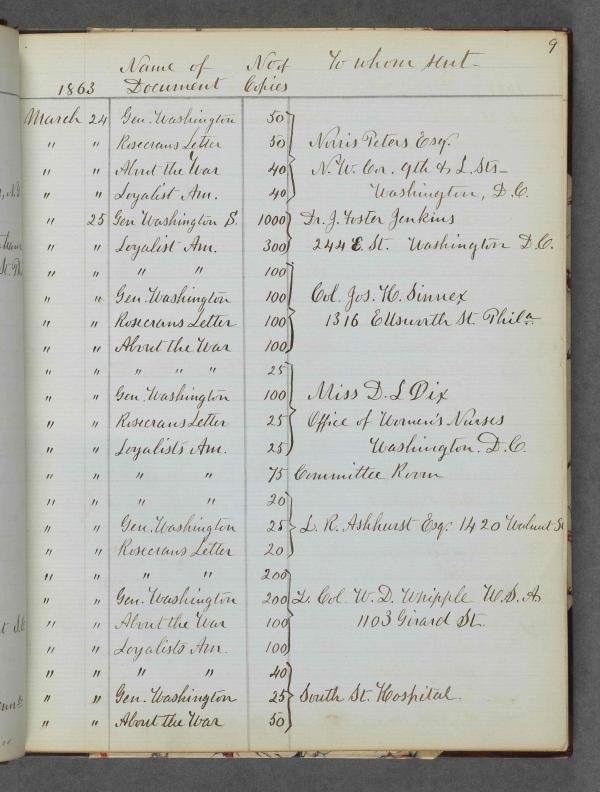 9
Name of No of To whom sent
1863 Document Copies
March 24 Gen. Washington 50
" " Rosecrans Letter 50 Norris Peters Esq.
" " About the War 40 N.W. Cor. 9th & L. Sts
" " Loyalist Am. 40 Washington, D.C.
" 25 Gen Washington S. 1000 Dr. J. Foster Jenkins
" " Loyalist Am. 300 244 E. St. Washington D.C.
" " " " 100
" " Gen. Washington 100 Col. Jos. H. Sinnex
" " Rosecrans Letter 100 1316 Ellsworth St Phila
" " About the War 100
" " " " " 25
" " Gen. Washington 100 Miss D. L Dix
" " Rosecrans Letter 25 Office of Women's Nurses
" " Loyalists Am. 25 Washington. D.C.
" " " " 75 Committee Room
" " " " 20
" " Gen. Washington 25 L. R. Ashhurst Esq. 1420 Walnut St
" " Rosecrans Letter 20
" " " " 200
" " Gen. Washington 200 Lt. Col. W. D. Whipple U.S.A
" " About the War 100 1103 Girard St.
" " Loyalists Am. 100
" " " " 40
" " Gen. Washington 25 South St. Hospital
" " About the War 50